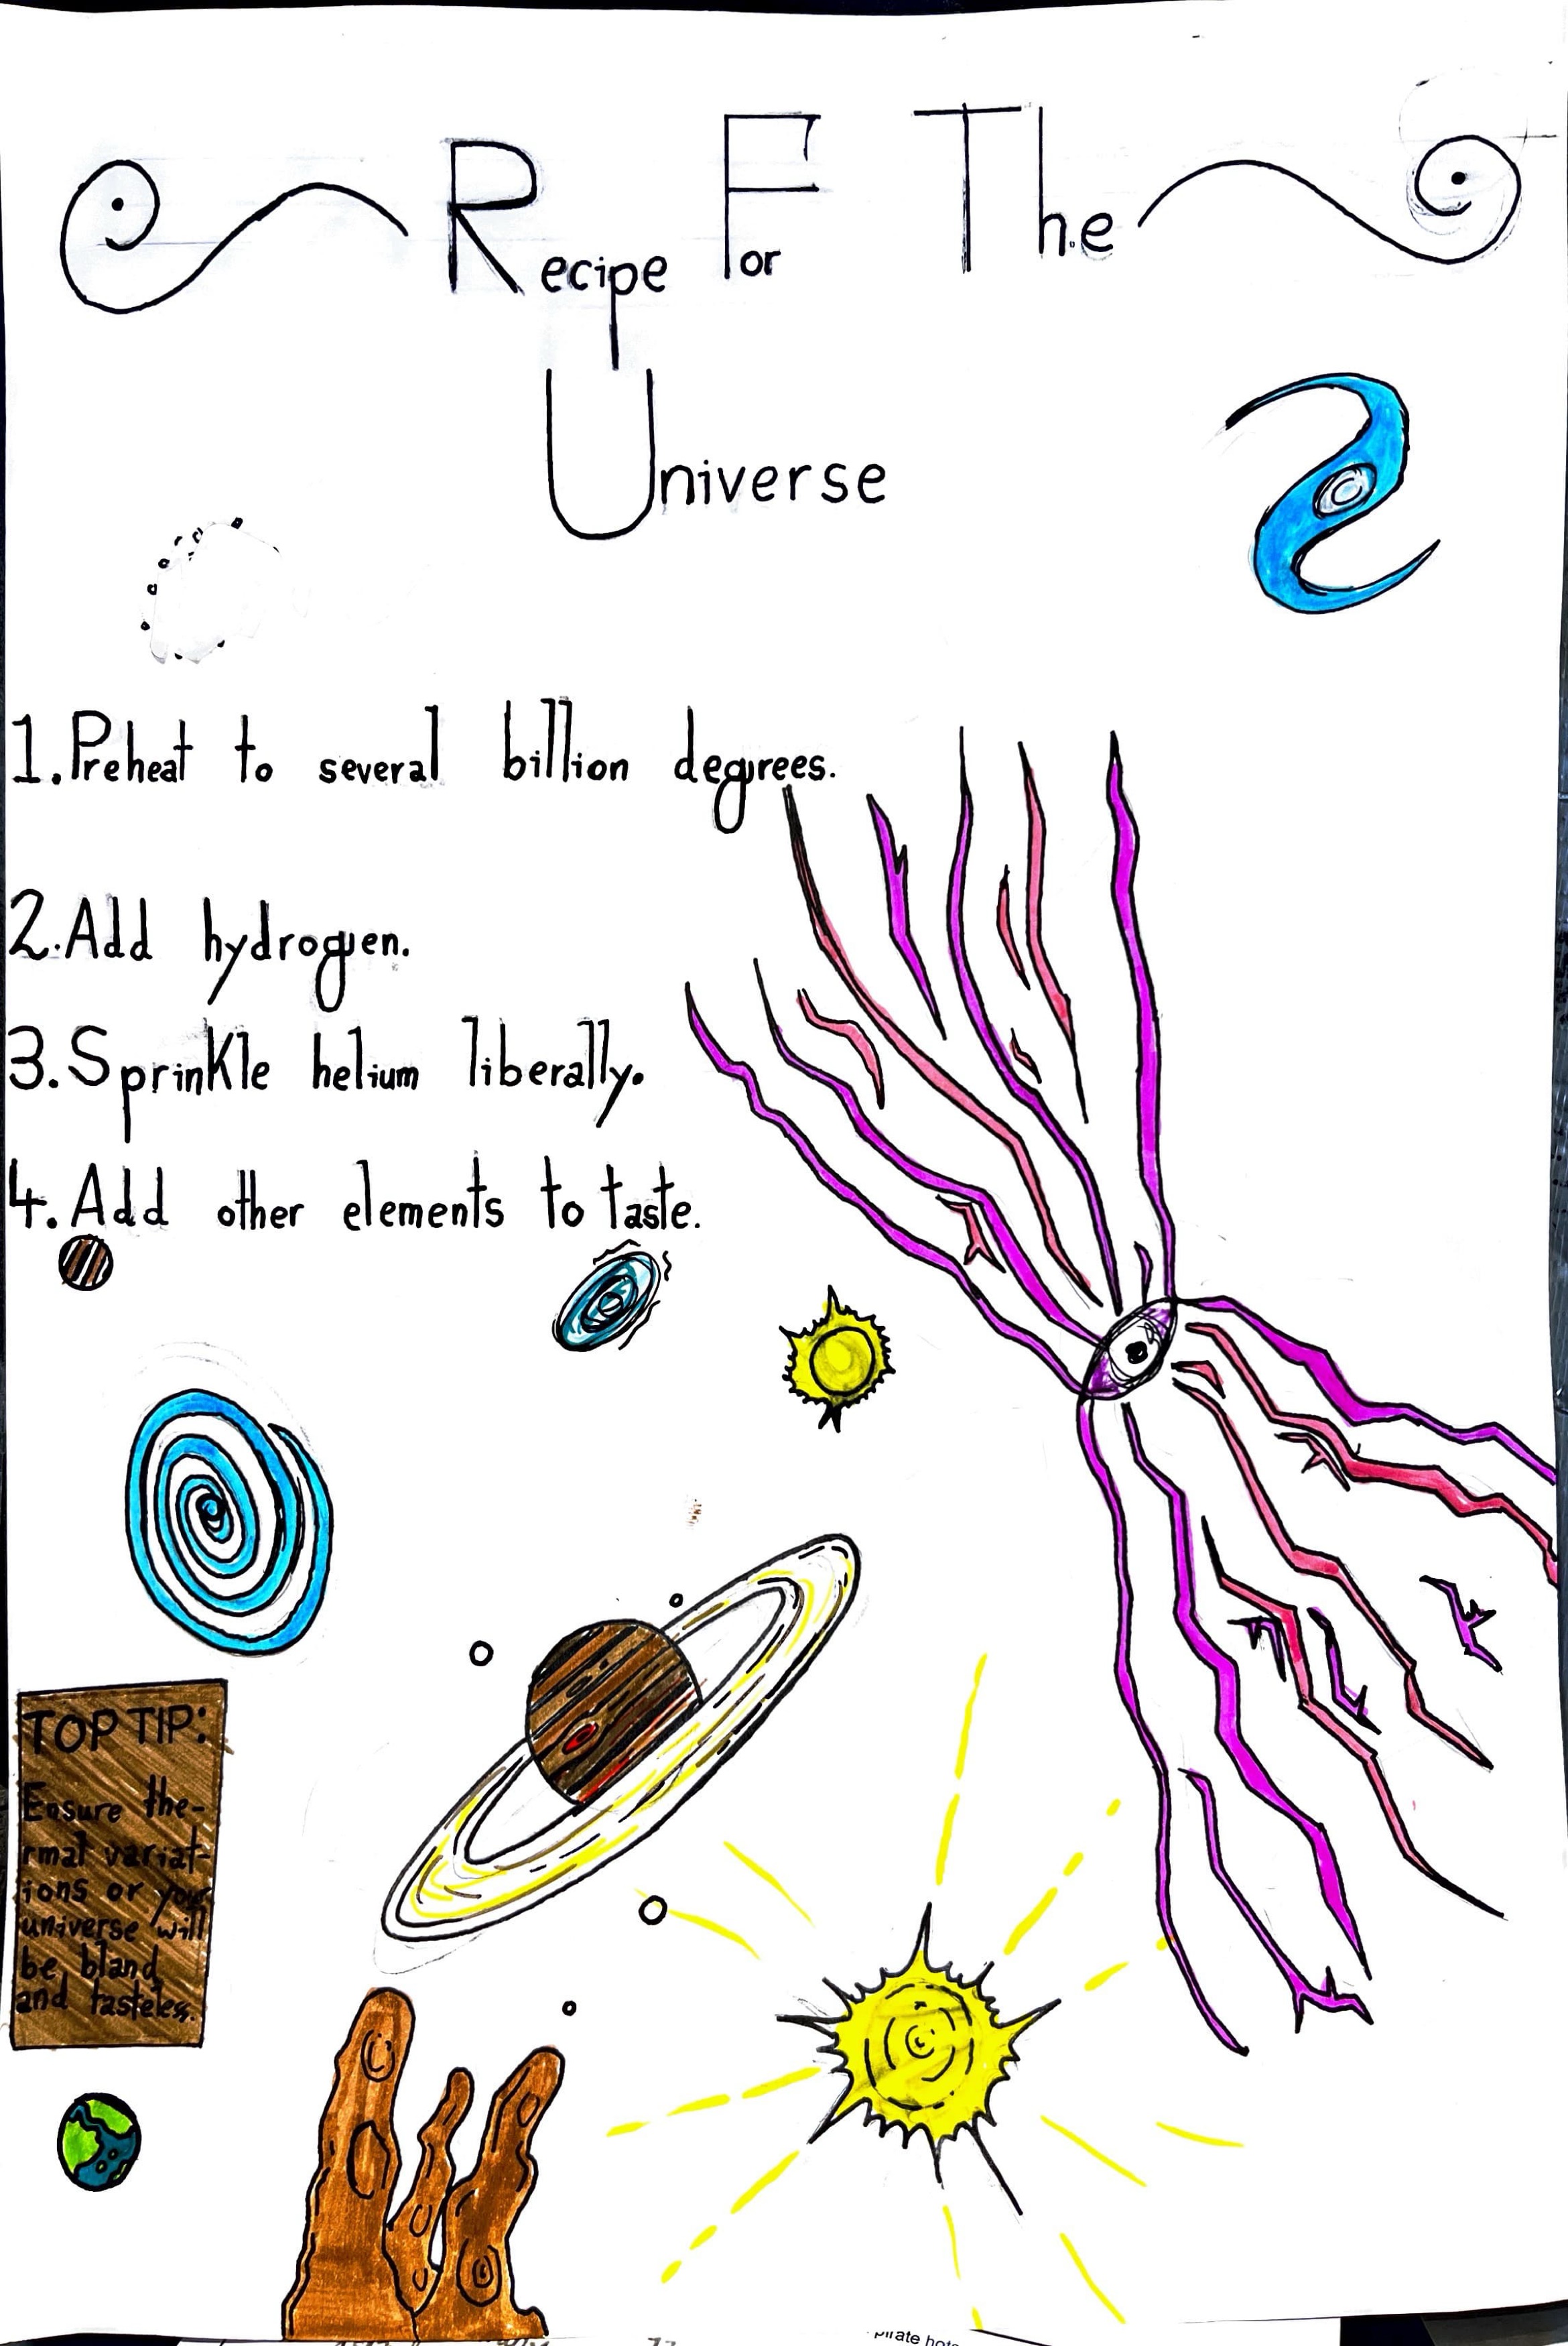 Recipe For The
Universe
1. Preheat to several billion degrees.
2. Add hydrogen.
3. Sprinkle helium liberally.
4. Add other elements to taste.
TOP TIP:
Ensure the-
rmal variat-
ions or your
universe will
be bland
and tasteless.
pirate